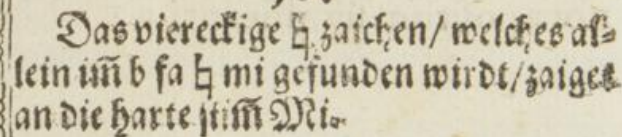 Das viereckige ♮ zaichen/ welches al⸗
lein im̃ b fa ♮ mi gefunden wirdt/ zaiget
an die harte stim̃ Mi.